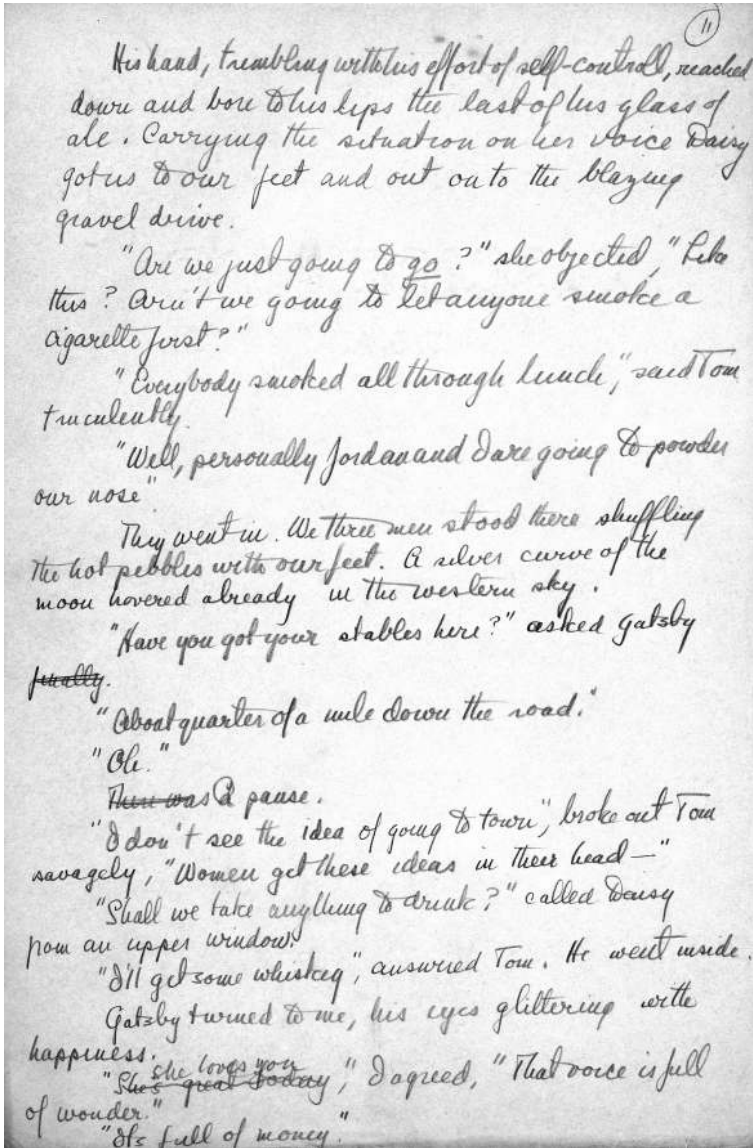 11
His hand, trembling with his effort of self-controll, reached
down and bore to his lips the last of his glass of
ale. Carrying the situation on her voice Daisy
got us to our feet and out onto the blazing
gravel drive.
"Are we just going to go?" she objected, "Like
this? Arn't we going to let anyone smoke a
cigarette first?"
"Everybody smoked all through lunch", said Tom
truculently.
"Well, personally Jordan and I are going to powder
our nose"
They went in. We three men stood there shuffling
the hot pebbles with our feet. A silver curve of the
moon hovered already in the western sky.
"Have you got your stables here?" asked Gatsby
finally.
"About quarter of a mile down the road."
"Oh."
There was A pause.
"I don't see the idea of going to town", broke out Tom
savagely, "Women get these ideas in their head—"
"Shall we take anything to drink?" called Daisy
from an upper window.
"I'll get some whiskey", answered Tom. He went inside.
Gatsby turned to me, his eyes glittering with
happiness.
she loves you
"She's great today", I agreed, "That voice is full
of wonder."
"It's full of money."